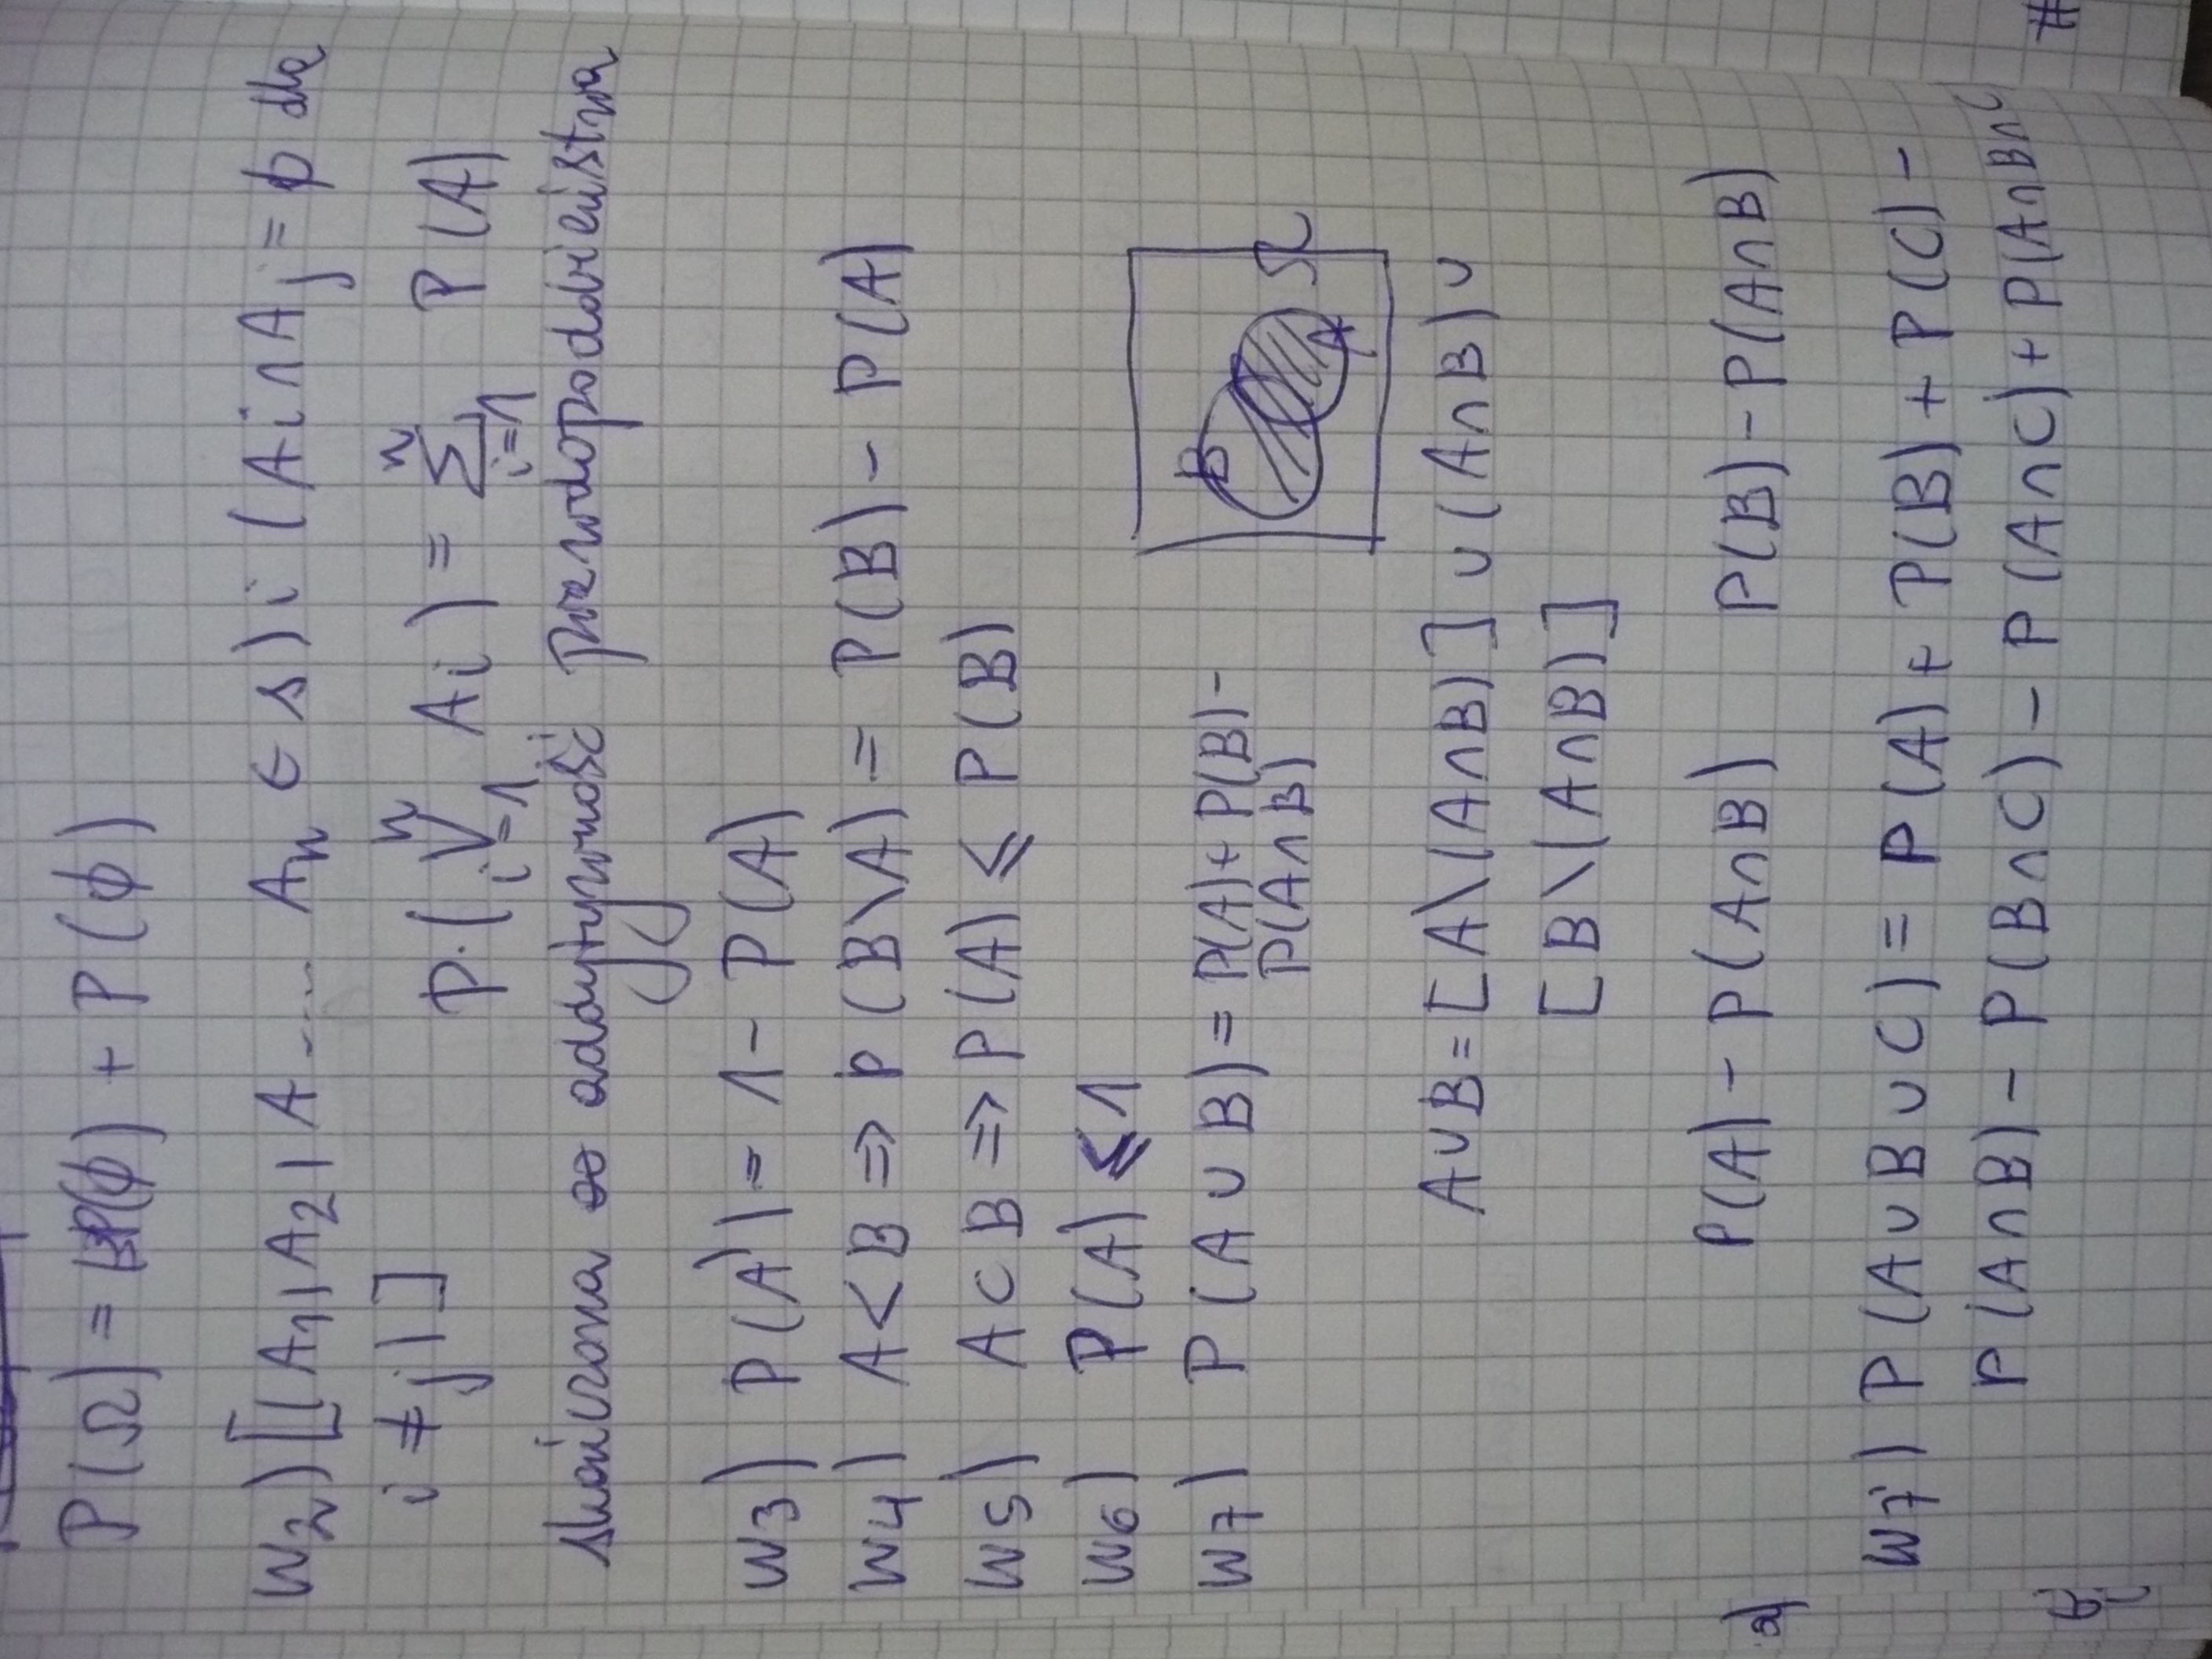 P(Ω) = P(ϕ) + P(ϕ)
W2) [(A1, A2, A .... An ∈ s) i (Ai ∩ Aj = ϕ dla
i ≠ j)] P(⋁ⁿᵢ₌₁ Ai) = ∑ⁿᵢ₌₁ P(A)
skończona addytywność prawdopodobieństwa
W3) P(A') = 1 - P(A)
W4) A < B ⇒ P(B\A) = P(B) - P(A)
W5) A ⊂ B ⇒ P(A) ≤ P(B)
W6) P(A) ≤ 1
W7) P(A ∪ B) = P(A) + P(B) -
P(A ∩ B)
B
A
Ω
A ∪ B = [A \ (A ∩ B)] ∪ (A ∩ B) ∪
[B \ (A ∩ B)]
P(A) - P(A ∩ B) P(B) - P(A ∩ B)
a)
W7') P(A ∪ B ∪ C) = P(A) + P(B) + P(C) -
P(A ∩ B) - P(B ∩ C) - P(A ∩ C) + P(A ∩ B ∩ C
#